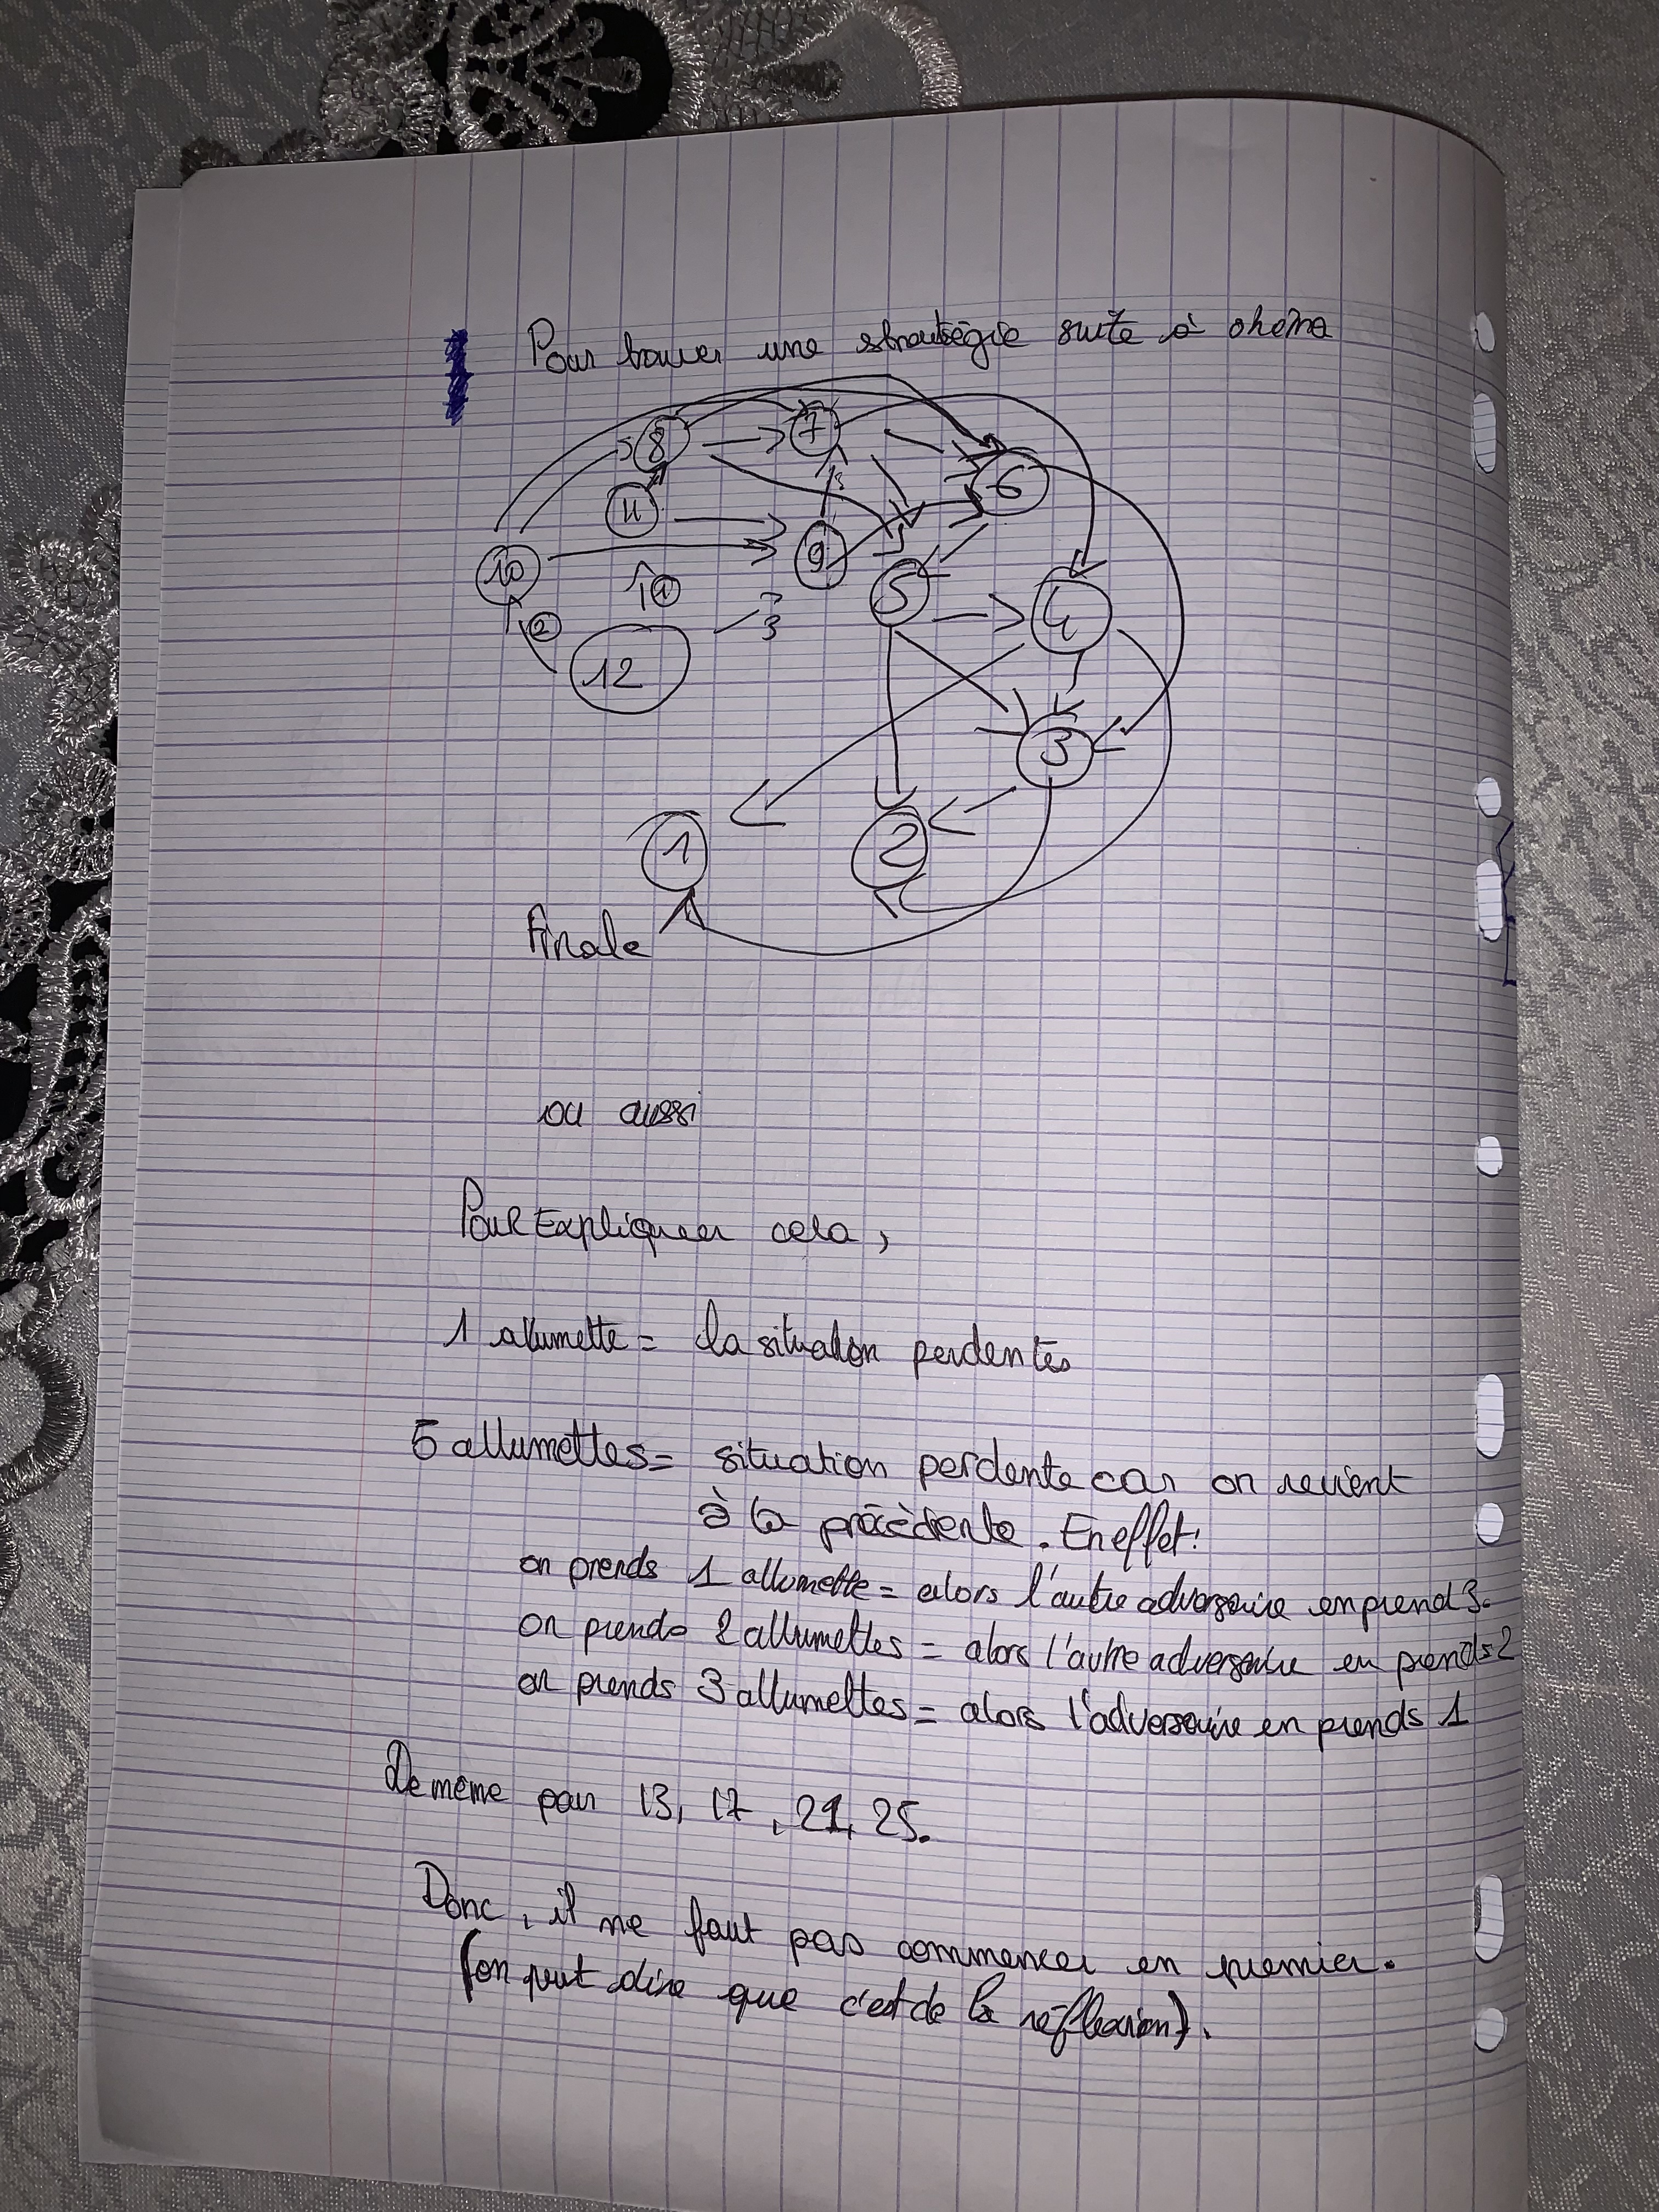 Pour trouver une stratégie suite à shéma
8 7
6
11
10 9
5 4
12
3
1 2
Finale
ou aussi
Pour Expliquer cela,
1 allumette = la situation perdentes
5 allumettes = situation perdente car on revient
à la précèdente. En effet:
on prends 1 allumette = alors l'autre adversaire en prend 3.
on prends 2 allumettes = alors l'autre adversaire en prends 2
on prends 3 allumettes = alors l'adversaire en prends 1
De même pour 13, 17, 21, 25.
Donc, il ne faut pas commencer en premier.
(on peut dire que c'est de la réflexion).